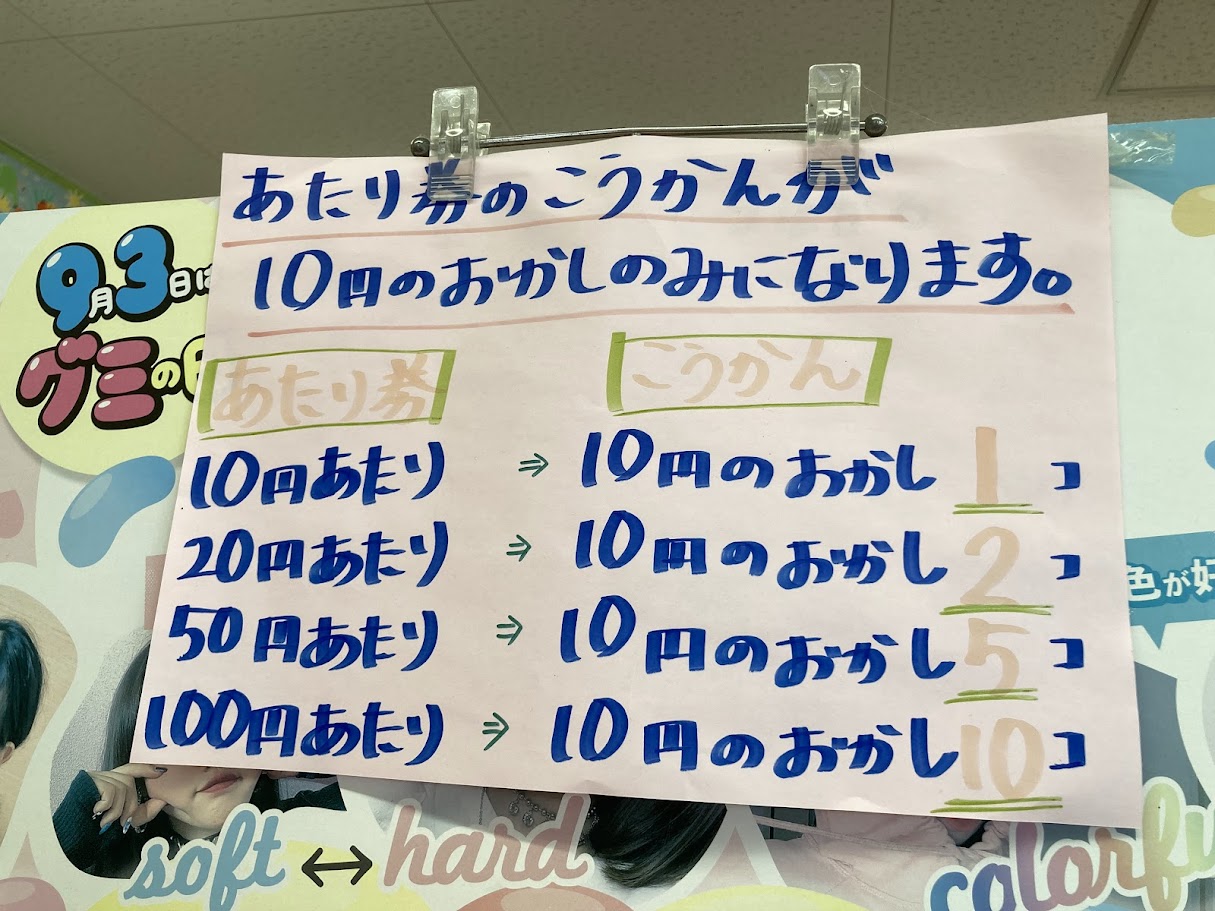 あたり券のこうかんが
10円のおかしのみになります。
あたり券 こうかん
10円あたり ⇒ 10円のおかし 1 コ
20円あたり ⇒ 10円のおかし 2 コ
50円あたり ⇒ 10円のおかし 5 コ
100円あたり ⇒ 10円のおかし 10 コ
9月3日は
グミの
色が好
soft ↔ hard
colorfu